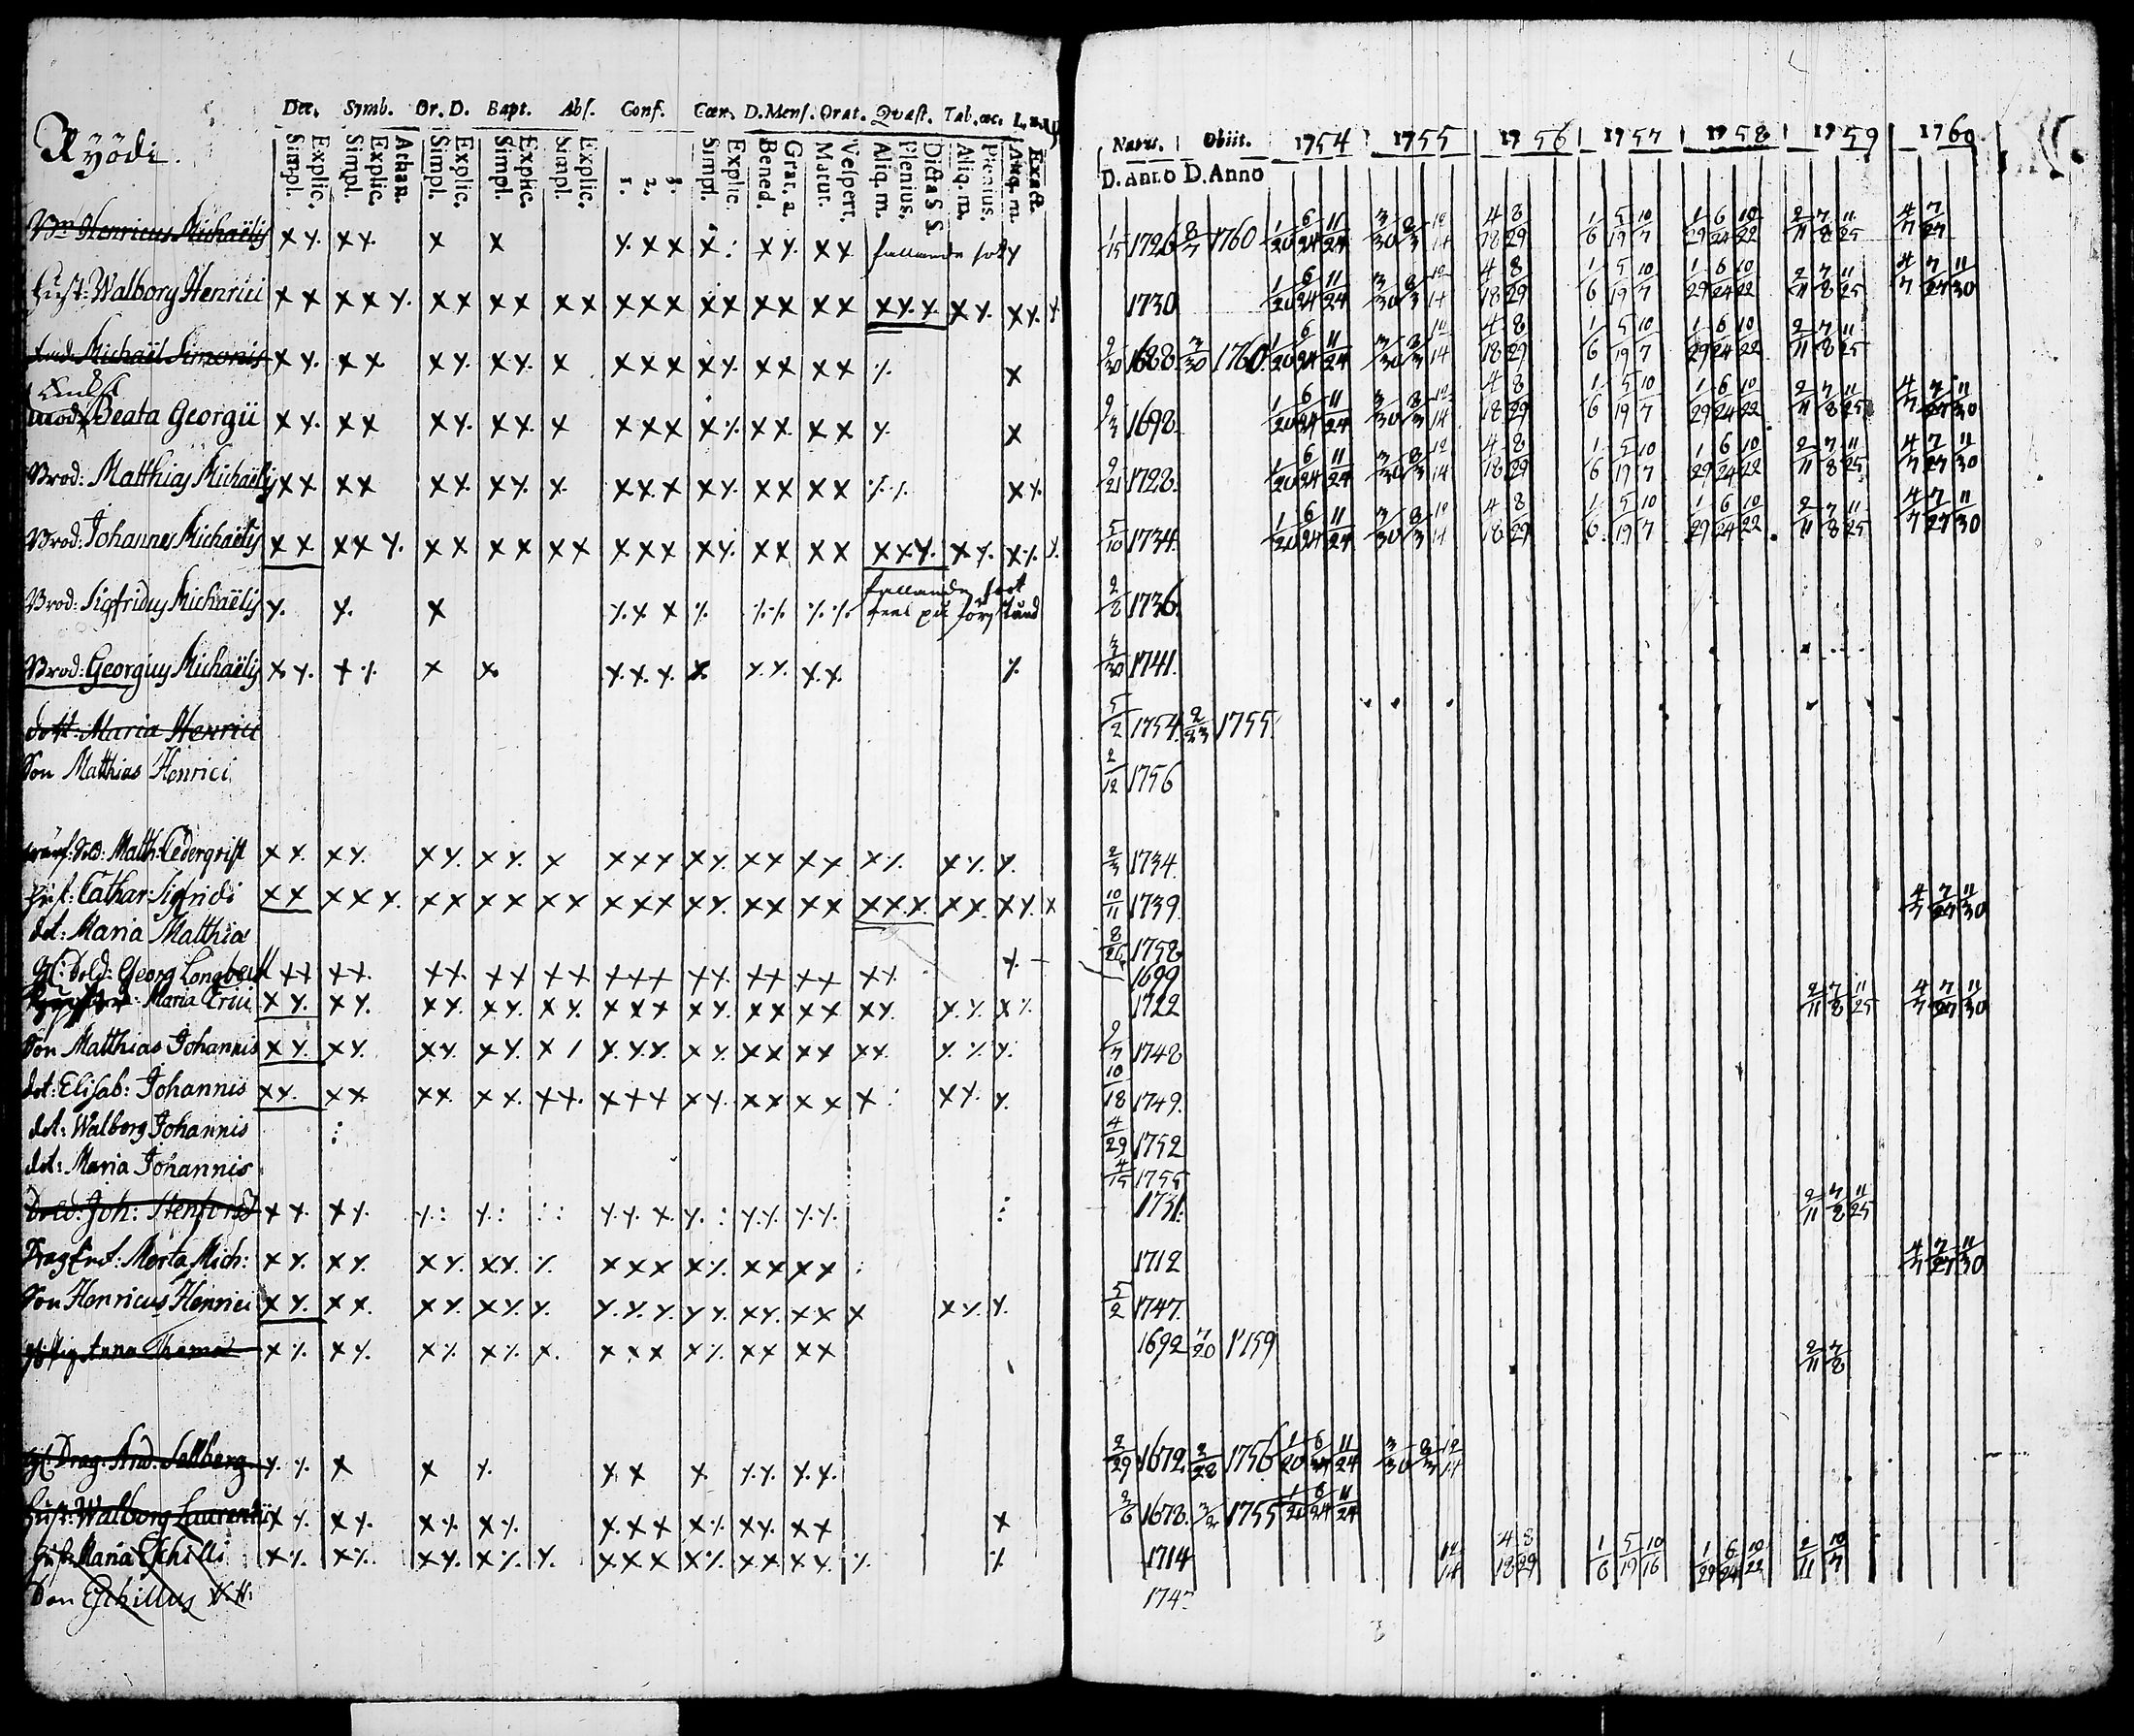 Ryödi.
Dec. Symb. Or. D. Bapt. Abs. Conf. Cœn. D. Mens. Orat. Qvæst. Tab. œc.
Simpl. Explic. Simpl. Explic. Athan. Simpl. Explic. Simpl. Explic. Simpl. Explic. 1. 2. 3. Simpl. Explic. Bened. Grat. a. Matut. Vespert. Aliq. m. Plenius. Dicta S S. Aliq. m. Plenius. Aliq. m. Exact.
Natus. Obiit. 1754 1755 1756 1757 1758 1759 1760
D. Anno D. Anno
Henricus Michaëlis fallande 1/15 1726 8/7 1760 1/20 6/24 11/24 3/30 8/3 12/14 4/18 8/29 1/6 5/19 10/7 1/29 6/24 10/22 2/11 7/8 11/25 4/7 7/27
Hust: Walborg Henrici 1730 1/20 6/24 11/24 3/30 8/3 12/14 4/18 8/29 1/6 5/19 10/7 1/29 6/24 10/22 2/11 7/8 11/25 4/7 7/27 11/30
Michaël Simonis 9/30 1688 3/30 1760 1/20 6/24 11/24 3/30 8/3 12/14 4/18 8/29 1/6 5/19 10/7 1/29 6/24 10/22 2/11 7/8 11/25
Enka
Mod: Beata Georgii 9/3 1698 1/20 6/24 11/24 3/30 8/3 12/14 4/18 8/29 1/6 5/19 10/7 1/29 6/24 10/22 2/11 7/8 11/25 4/7 7/27 11/30
Brod: Matthias Michaëlis 9/21 1728 1/20 6/24 11/24 3/30 8/3 12/14 4/18 8/29 1/6 5/19 10/7 1/29 6/24 10/22 2/11 7/8 11/25 4/7 7/27 11/30
Brod: Johannes Michaëlis 5/10 1734 1/20 6/24 11/24 3/30 8/3 12/14 4/18 8/29 1/6 5/19 10/7 1/29 6/24 10/22 2/11 7/8 11/25 4/7 7/27 11/30
fallande soot
Brod: Sigfridus Michaëlis feel på förstånd 2/8 1736
Brod: Georgius Michaëlis 3/30 1741
dott: Maria Henrici 5/2 1754 2/23 1755
Son Matthias Henrici 2/12 1756
Matth: Cederqvist 2/3 1734
Hust: Cathar: Sigfridi 10/11 1739 4/7 7/27 11/30
dot: Maria Matthiæ 8/26 1758
Gl: Sold: Georg Longberg 1699
Maria Erici 1722 2/11 7/8 11/25 4/7 7/27 11/30
Son Matthias Johannis 9/7 1748
dot: Elisab: Johannis 10/18 1749
dot: Walborg Johannis 4/29 1752
dot: Maria Johannis 4/15 1755
Joh: Stenfors 1731 2/11 7/8 11/25
Morta Mich: 1712 4/7 7/27 11/30
Son Henricus Henrici 5/2 1747
Anna Thomæ 1692 7/20 1759 2/11 7/8
Gl: Drag: And. Sallberg 2/29 1672 2/28 1756 1/20 6/24 11/24 3/30 8/3 12/14
Hust: Walborg Laurentii 1678 1755 1/20 6/24 11/24
Hust: Maria Eschilli 1714 12/14 4/18 8/29 1/6 5/19 10/16 1/29 6/24 10/22 2/11 10/7
Son Eschillus